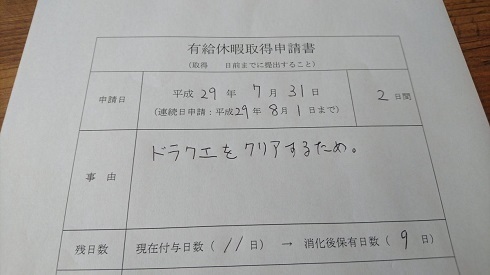 有給休暇取得申請書
(取得　　日前までに提出すること)
申請日　平成 29 年 7 月 31 日　2 日間
(連続日申請：平成29年 8月 1日まで)
事由　ドラクエをクリアするため。
残日数　現在付与日数（ 11 日）→ 消化後保有日数（ 9 日）